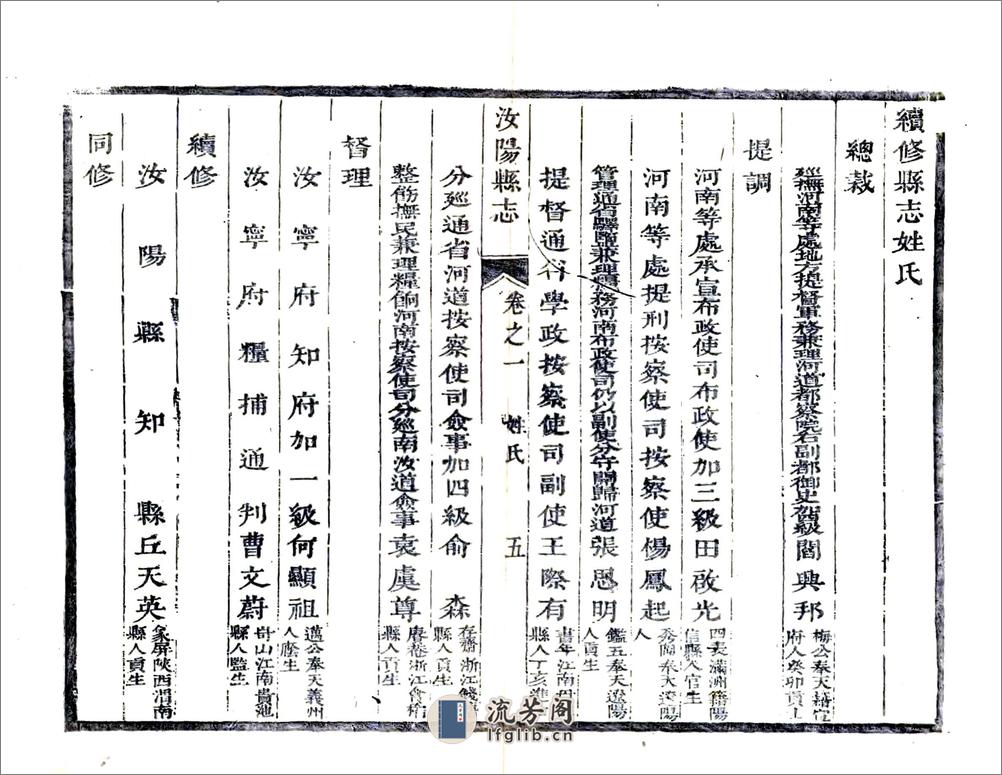 續修縣志姓氏
總裁
巡撫河南等處地方提督軍務兼理河道都察院右副都御史加級閻興邦
梅公奉天籍宣
府人癸卯貢士
提調
河南等處承宣布政使司布政使加三級田啟光
四表滿洲籍陽
信縣人官生
河南等處提刑按察使司按察使楊鳳起
奉天遼陽
人
管理通省驛鹽兼理糧務河南布政使司仍以副使分守開歸河道張思明
鑑五奉天遼陽
人貢生
提督通省學政按察使司副使王際有
書年江南丹
縣人丁亥進
汝陽縣志
卷之一
姓氏
五
分巡通省河道按察使司僉事加四級俞森
存齋浙江錢
縣人貢生
整飭撫民兼理糧餉河南按察使司分巡南汝道僉事袁虞尊
浙江會稽
縣人貢生
督理
汝寧府知府加一級何顯祖
邁公奉天義州
人廕生
汝寧府糧捕通判曹文蔚
山江南貴池
縣人監生
續修
汝陽縣知縣丘天英
象屏陝西渭南
縣人貢生
同修
流芳阁
lfglib.cn